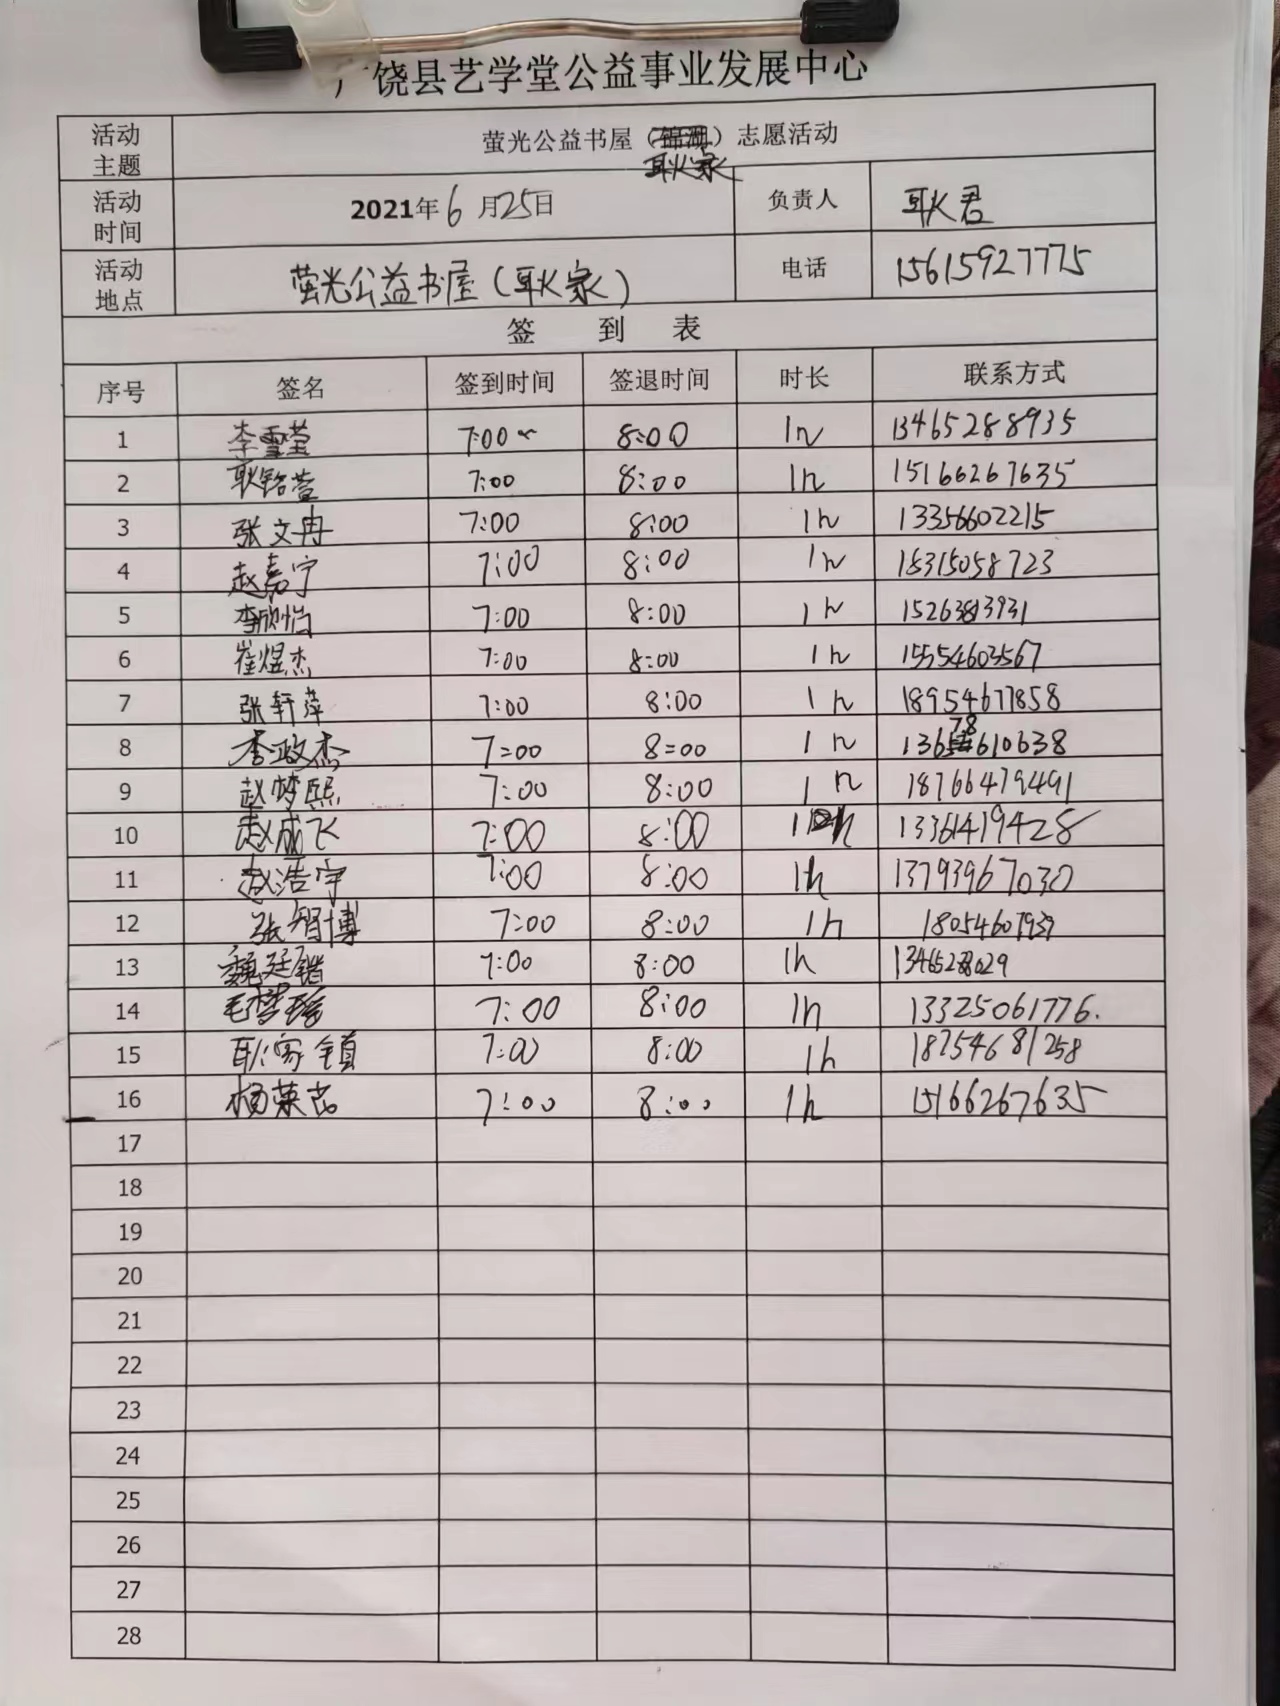 广饶县艺学堂公益事业发展中心
活动主题 萤光公益书屋（锦湖）志愿活动
耿家
活动时间 2021年6月25日 负责人 耿君
活动地点 萤光公益书屋（耿家） 电话 15615927775
签 到 表
序号 签名 签到时间 签退时间 时长 联系方式
1 李雪莹 7:00 8:00 1h 13465288935
2 耿铭萱 7:00 8:00 1h 15166267635
3 张文冉 7:00 8:00 1h 13356602215
4 赵嘉宁 7:00 8:00 1h 15315058723
5 李欣怡 7:00 8:00 1h 15263813931
6 崔煜杰 7:00 8:00 1h 15554603567
7 张轩萍 7:00 8:00 1h 18954677858
8 李政杰 7:00 8:00 1h 13678610638
9 赵梦熙 7:00 8:00 1h 18766479491
10 赵成飞 7:00 8:00 1h 13361419428
11 赵浩宇 7:00 8:00 1h 13793967030
12 张智博 7:00 8:00 1h 18054607939
13 魏廷锴 7:00 8:00 1h
14 毛梦瑶 7:00 8:00 1h 13325061776.
15 耿家镇 7:00 8:00 1h 18754681258
16 杨荣 7:00 8:00 1h 15166267635
17
18
19
20
21
22
23
24
25
26
27
28